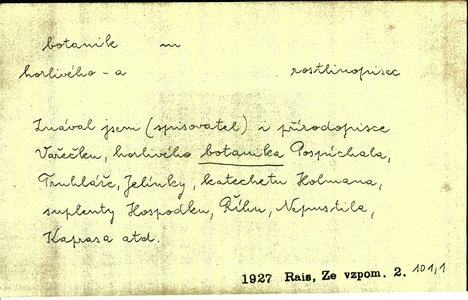 botanik m
horlivého - a rostlinopisec
Znával jsem (spisovatel) i přírodopisce
Vařečku, horlivého botanika Pospíchala,
Truhláře, Jelínky, katechetu Holmana,
suplenty Hospodku, Říhu, Nepustila,
Kaprasa atd.
1927 Rais, Ze vzpom. 2. 101,1